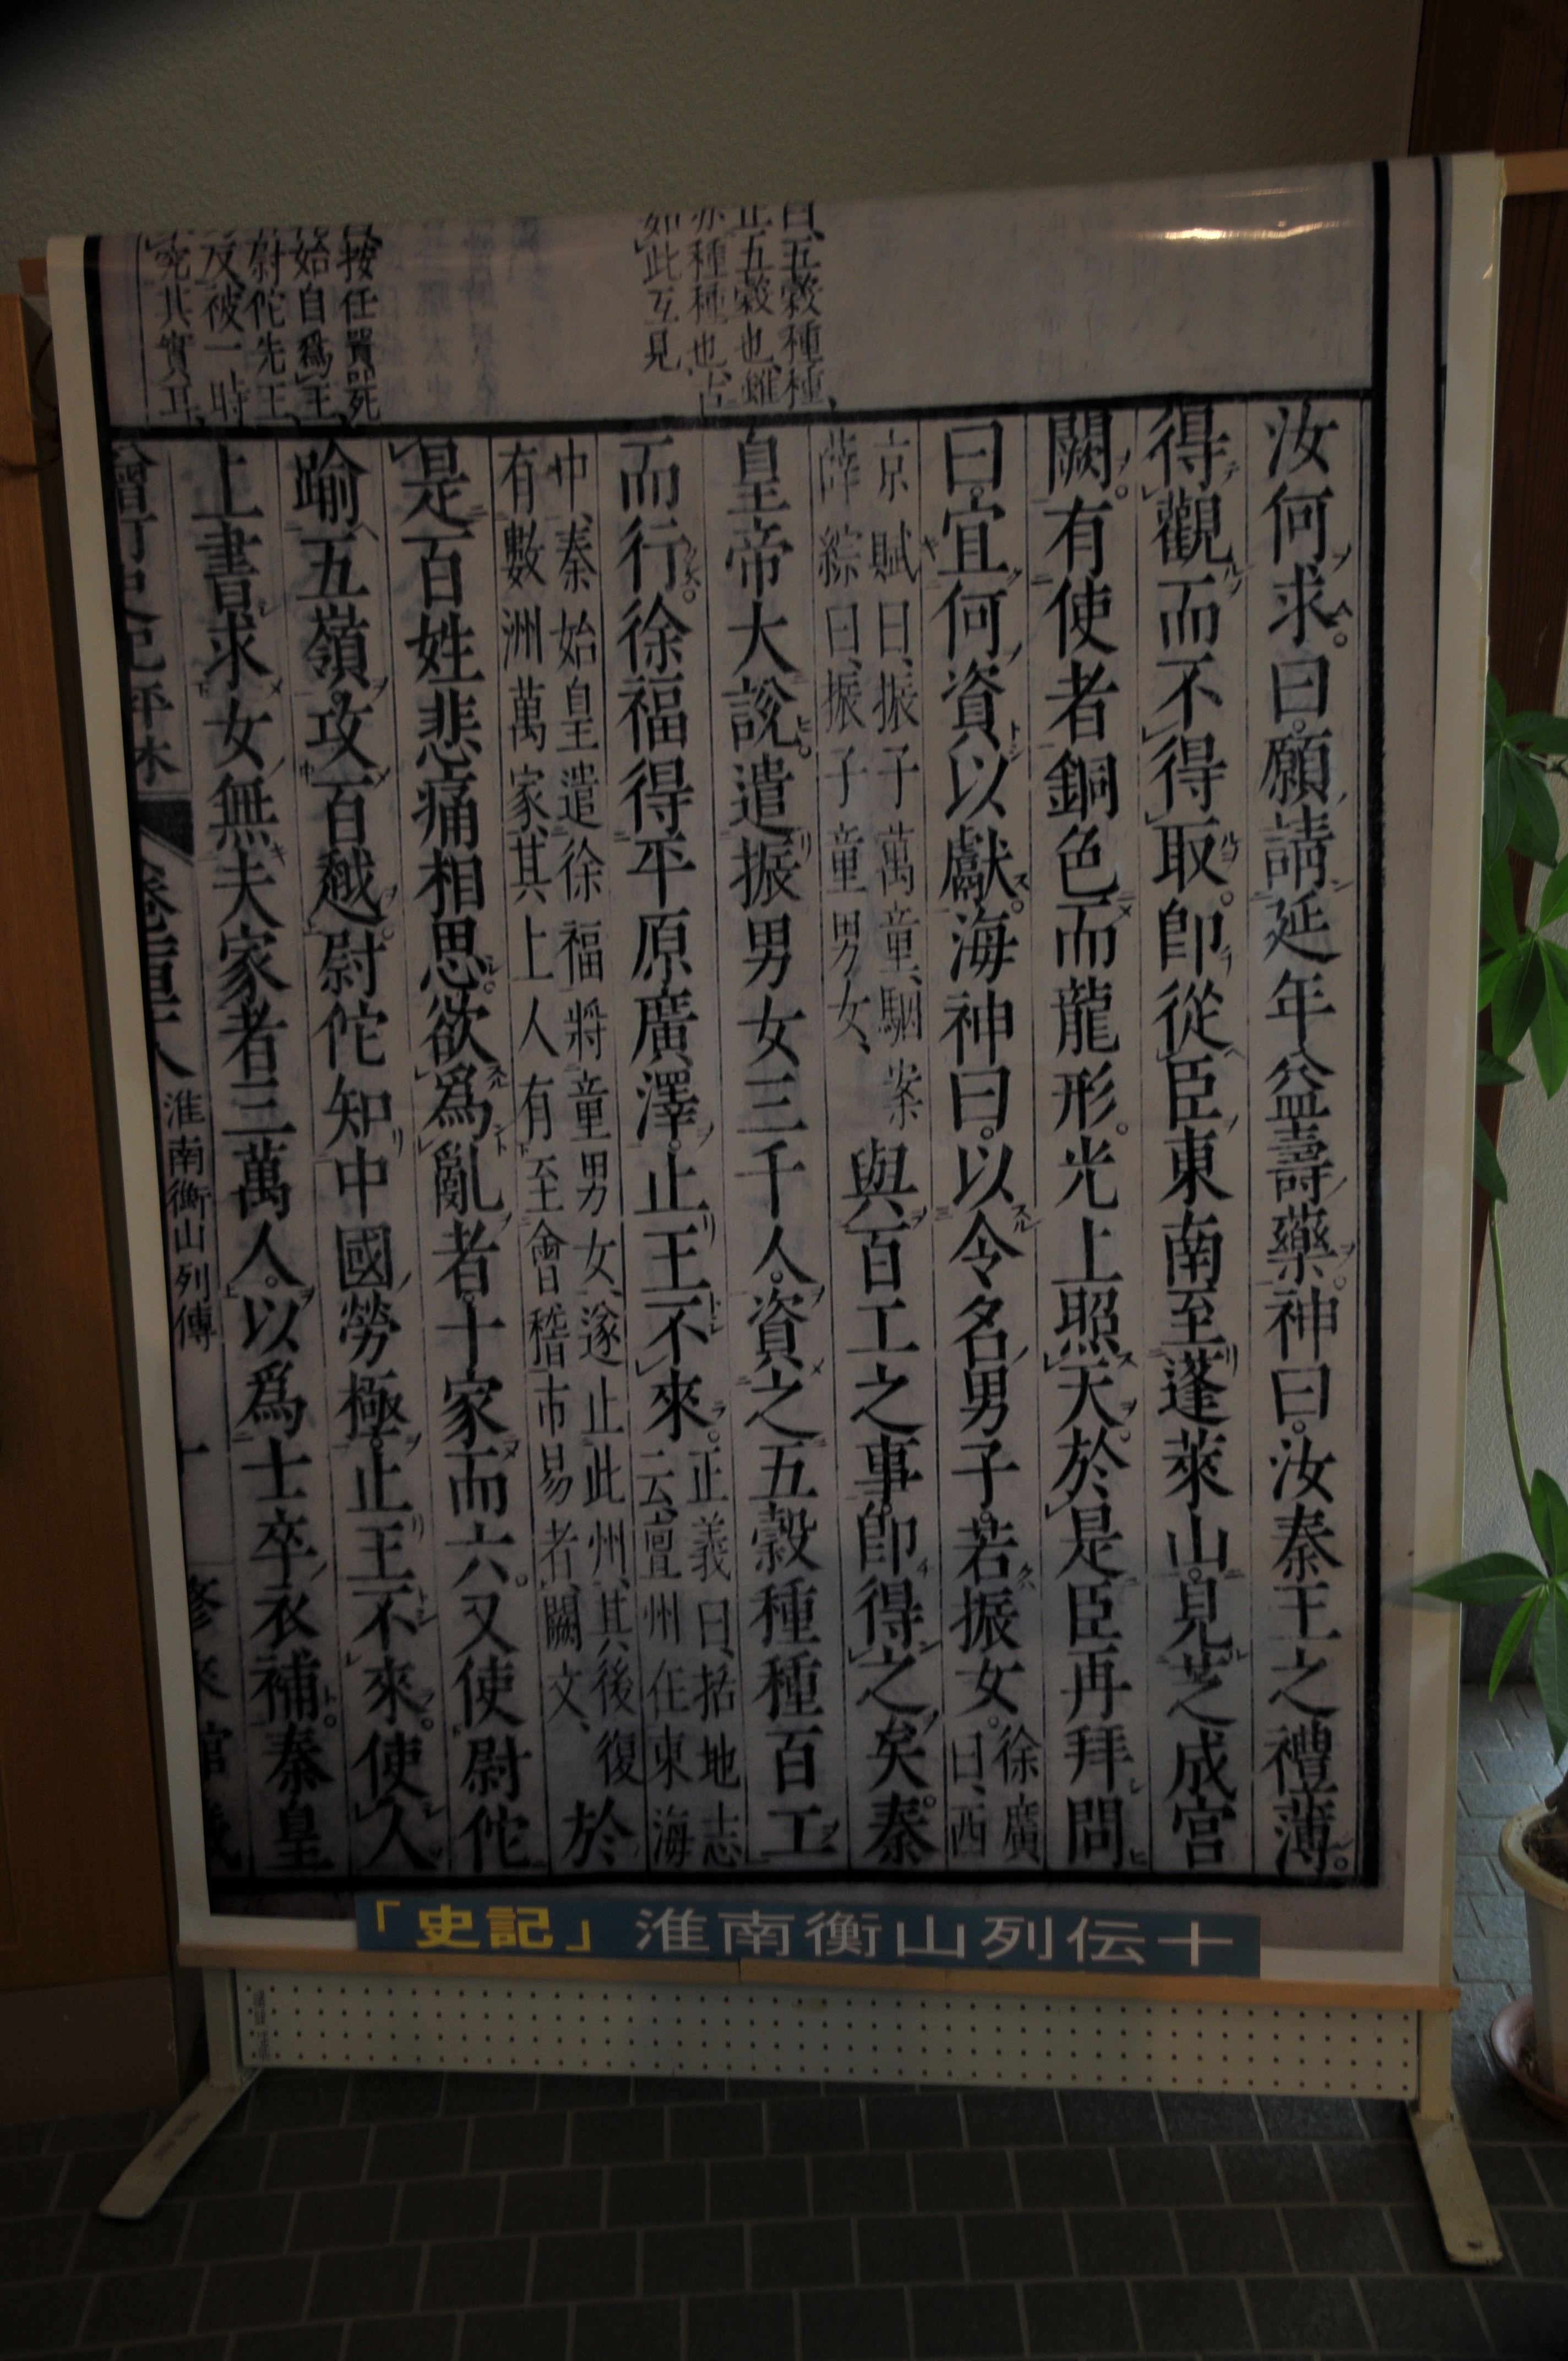 汝何求。曰。願請延年益壽藥。神曰。汝秦王之禮薄。
得觀而不得取。即從臣東南至蓬萊山。見芝成宮
闕。有使者銅色而龍形。光上照天。於是臣再拜問
曰。宜何資以獻。海神曰。以令名男子若振女。徐廣曰、西
京賦曰、振子萬童、駰案
薛綜曰、振子童男女、
與百工之事。即得之矣。秦
皇帝大說。遣振男女三千人。資之五穀種種百工
而行。徐福得平原廣澤。止王不來。正義曰、括地志
云、亶州在東海
中、秦始皇遣徐福將童男女、遂止此州、其後復
有數洲萬家、其上人有至會稽市易者、闕文、
於
是百姓悲痛相思。欲爲亂者。十家而六。又使尉佗
踰五嶺。攻百越。尉佗知中國勞極。止王不來。使人
上書求女無夫家者三萬人。以爲士卒衣補。秦皇
淮南衡山列傳 十
五穀種種、
五穀也、雖
亦種種也、古
如此互見
按任囂死
始自爲王、
尉佗先王、
反、被一時
究其實耳
「史記」淮南衡山列伝十